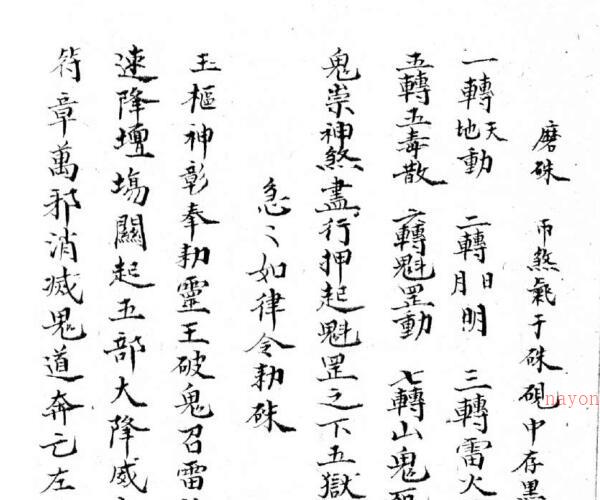 磨硃 帀煞氣于硃硯中存黑
一轉天地動 二轉日月明 三轉雷火
五轉五毒散 六轉魁罡動 七轉山鬼
鬼祟神煞盡行押起魁罡之下五獄
急〻如律令勅硃
玉樞神彰奉勅靈王破鬼召雷
速降壇塲關起五部大降威
符章萬邪消滅鬼道奔亡左
nayon